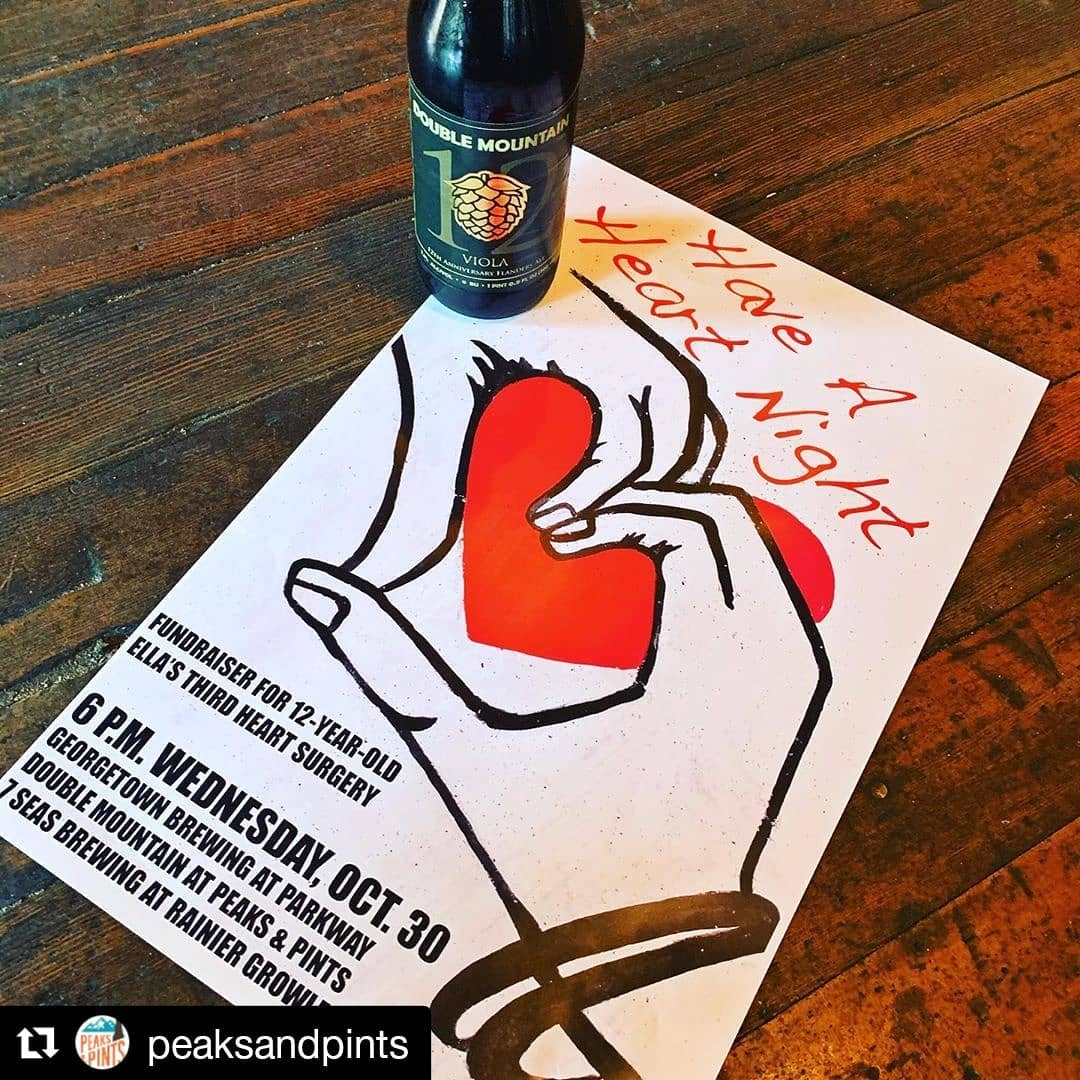 DOUBLE MOUNTAIN
12
VIOLA
12TH ANNIVERSARY FLANDERS ALE
Have A
Heart Night
FUNDRAISER FOR 12-YEAR-OLD
ELLA'S THIRD HEART SURGERY
6 P.M. WEDNESDAY, OCT. 30
GEORGETOWN BREWING AT PARKWAY
DOUBLE MOUNTAIN AT PEAKS & PINTS
7 SEAS BREWING AT RAINIER
PEAKS
PINTS
peaksandpints